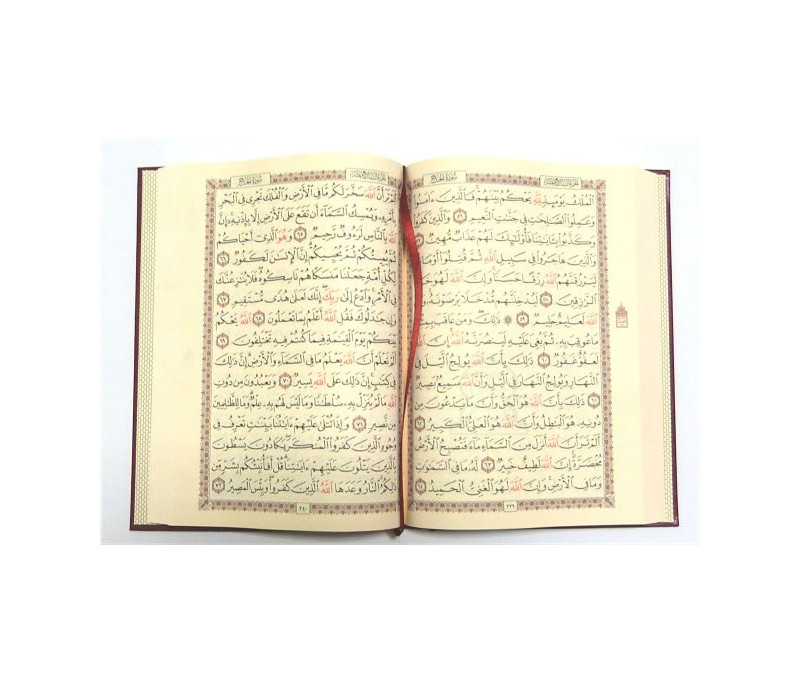 سُورَةُ الحَجِّ
الجُزْءُ السَّابِعَ عَشَرَ
ٱلْمُلْكُ يَوْمَئِذٍ لِّلَّهِ يَحْكُمُ بَيْنَهُمْ فَٱلَّذِينَ ءَامَنُوا۟
وَعَمِلُوا۟ ٱلصَّٰلِحَٰتِ فِى جَنَّٰتِ ٱلنَّعِيمِ ٥٦ وَٱلَّذِينَ كَفَرُوا۟
وَكَذَّبُوا۟ بِـَٔايَٰتِنَا فَأُو۟لَٰٓئِكَ لَهُمْ عَذَابٌ مُّهِينٌ ٥٧
وَٱلَّذِينَ هَاجَرُوا۟ فِى سَبِيلِ ٱللَّهِ ثُمَّ قُتِلُوٓا۟ أَوْ مَاتُوا۟
لَيَرْزُقَنَّهُمُ ٱللَّهُ رِزْقًا حَسَنًا وَإِنَّ ٱللَّهَ لَهُوَ خَيْرُ
ٱلرَّٰزِقِينَ ٥٨ لَيُدْخِلَنَّهُم مُّدْخَلًا يَرْضَوْنَهُۥ وَإِنَّ
ٱللَّهَ لَعَلِيمٌ حَلِيمٌ ٥٩ ۞ ذَٰلِكَ وَمَنْ عَاقَبَ بِمِثْلِ
مَا عُوقِبَ بِهِۦ ثُمَّ بُغِىَ عَلَيْهِ لَيَنصُرَنَّهُ ٱللَّهُ إِنَّ ٱللَّهَ
لَعَفُوٌّ غَفُورٌ ٦٠ ذَٰلِكَ بِأَنَّ ٱللَّهَ يُولِجُ ٱلَّيْلَ فِى
ٱلنَّهَارِ وَيُولِجُ ٱلنَّهَارَ فِى ٱلَّيْلِ وَأَنَّ ٱللَّهَ سَمِيعٌۢ بَصِيرٌ
٦١ ذَٰلِكَ بِأَنَّ ٱللَّهَ هُوَ ٱلْحَقُّ وَأَنَّ مَا يَدْعُونَ مِن
دُونِهِۦ هُوَ ٱلْبَٰطِلُ وَأَنَّ ٱللَّهَ هُوَ ٱلْعَلِىُّ ٱلْكَبِيرُ ٦٢
أَلَمْ تَرَ أَنَّ ٱللَّهَ أَنزَلَ مِنَ ٱلسَّمَآءِ مَآءً فَتُصْبِحُ ٱلْأَرْضُ
مُخْضَرَّةً إِنَّ ٱللَّهَ لَطِيفٌ خَبِيرٌ ٦٣ لَّهُۥ مَا فِى ٱلسَّمَٰوَٰتِ
وَمَا فِى ٱلْأَرْضِ وَإِنَّ ٱللَّهَ لَهُوَ ٱلْغَنِىُّ ٱلْحَمِيدُ ٦٤
٣٣٩
الجُزْءُ السَّابِعَ عَشَرَ
سُورَةُ الحَجِّ
أَلَمْ تَرَ أَنَّ ٱللَّهَ سَخَّرَ لَكُم مَّا فِى ٱلْأَرْضِ وَٱلْفُلْكَ تَجْرِى فِى ٱلْبَحْرِ
بِأَمْرِهِۦ وَيُمْسِكُ ٱلسَّمَآءَ أَن تَقَعَ عَلَى ٱلْأَرْضِ إِلَّا بِإِذْنِهِۦٓ إِنَّ
ٱللَّهَ بِٱلنَّاسِ لَرَءُوفٌ رَّحِيمٌ ٦٥ وَهُوَ ٱلَّذِىٓ أَحْيَاكُمْ
ثُمَّ يُمِيتُكُمْ ثُمَّ يُحْيِيكُمْ إِنَّ ٱلْإِنسَٰنَ لَكَفُورٌ ٦٦
لِّكُلِّ أُمَّةٍ جَعَلْنَا مَنسَكًا هُمْ نَاسِكُوهُ فَلَا يُنَٰزِعُنَّكَ
فِى ٱلْأَمْرِ وَٱدْعُ إِلَىٰ رَبِّكَ إِنَّكَ لَعَلَىٰ هُدًى مُّسْتَقِيمٍ ٦٧
وَإِن جَٰدَلُوكَ فَقُلِ ٱللَّهُ أَعْلَمُ بِمَا تَعْمَلُونَ ٦٨ ٱللَّهُ يَحْكُمُ
بَيْنَكُمْ يَوْمَ ٱلْقِيَٰمَةِ فِيمَا كُنتُمْ فِيهِ تَخْتَلِفُونَ ٦٩
أَلَمْ تَعْلَمْ أَنَّ ٱللَّهَ يَعْلَمُ مَا فِى ٱلسَّمَآءِ وَٱلْأَرْضِ إِنَّ ذَٰلِكَ
فِى كِتَٰبٍ إِنَّ ذَٰلِكَ عَلَى ٱللَّهِ يَسِيرٌ ٧٠ وَيَعْبُدُونَ مِن دُونِ
ٱللَّهِ مَا لَمْ يُنَزِّلْ بِهِۦ سُلْطَٰنًا وَمَا لَيْسَ لَهُم بِهِۦ عِلْمٌ وَمَا لِلظَّٰلِمِينَ
مِن نَّصِيرٍ ٧١ وَإِذَا تُتْلَىٰ عَلَيْهِمْ ءَايَٰتُنَا بَيِّنَٰتٍ تَعْرِفُ فِى
وُجُوهِ ٱلَّذِينَ كَفَرُوا۟ ٱلْمُنكَرَ يَكَادُونَ يَسْطُونَ
بِٱلَّذِينَ يَتْلُونَ عَلَيْهِمْ ءَايَٰتِنَا قُلْ أَفَأُنَبِّئُكُم بِشَرٍّ مِّن
ذَٰلِكُمُ ٱلنَّارُ وَعَدَهَا ٱللَّهُ ٱلَّذِينَ كَفَرُوا۟ وَبِئْسَ ٱلْمَصِيرُ ٧٢
٣٤٠